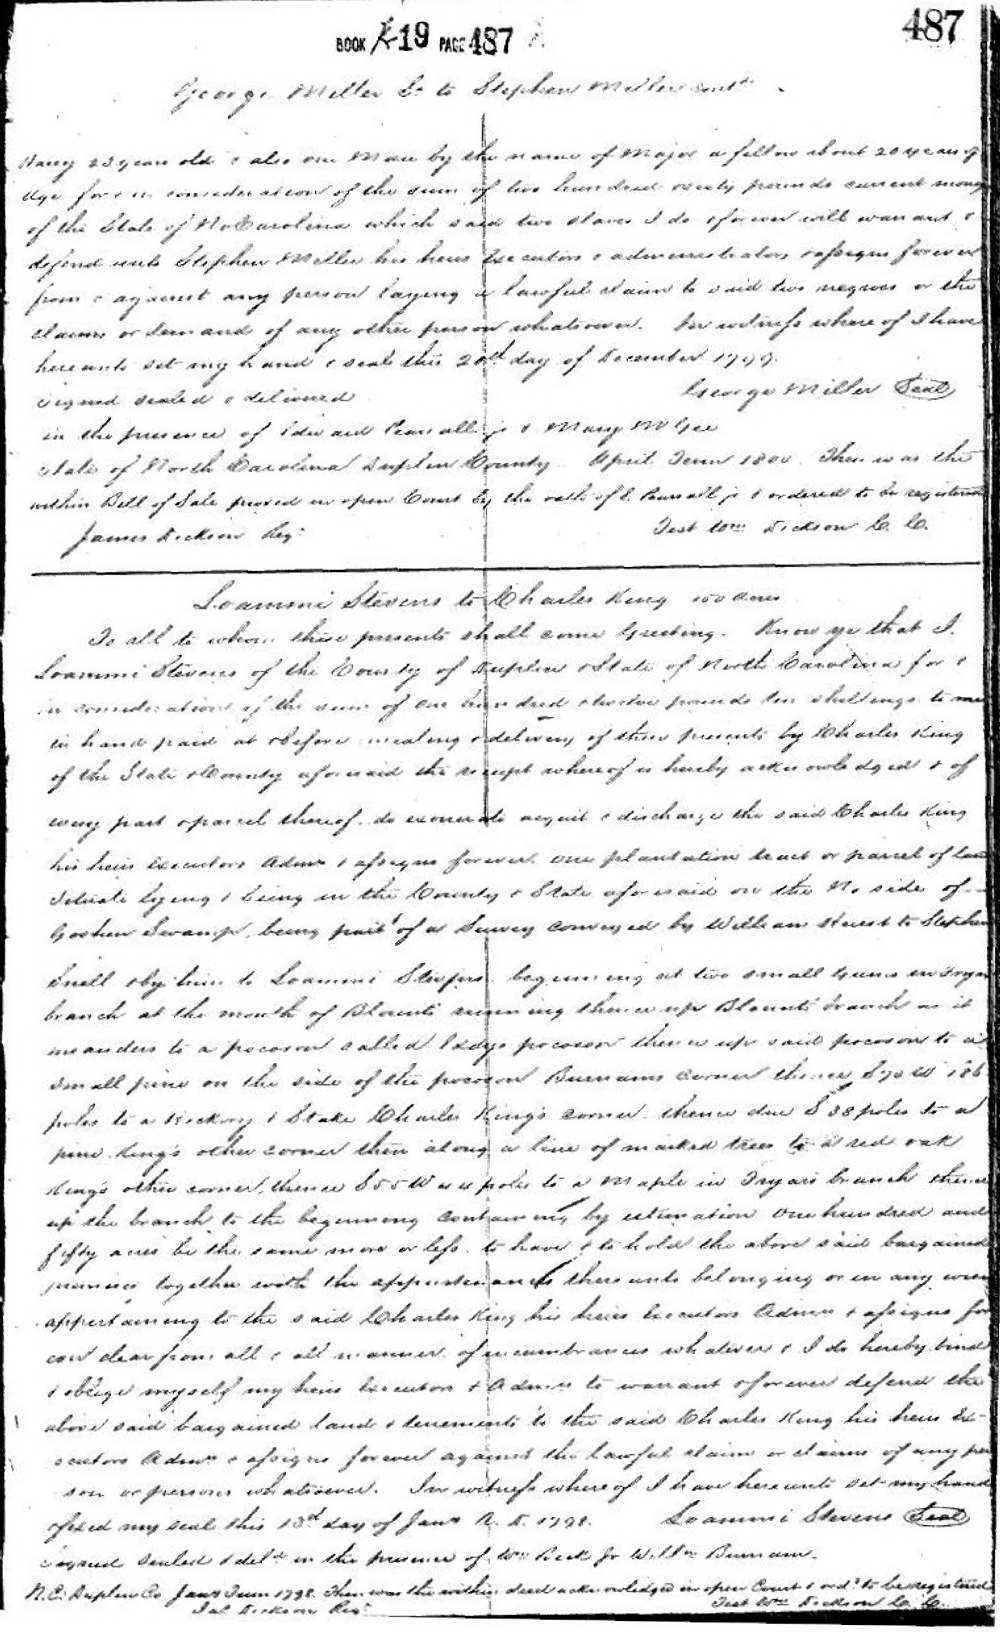 487
BOOK 19 PAGE 487
George Miller Sr to Stephen Miller
23 years old & also one Man by the name of Major a fellow about 20 years of
Age for & in consideration of the sum of two hundred pounds current money
of the State of No Carolina which said two slaves I do & forever will warrant &
defend unto Stephen Miller his heirs Executors & administrators & assigns forever
from & against any person laying a lawful claim to said two negroes or the
claims or demand of any other person whatsoever. In witness where of I have
hereunto set my hand & seal this 20th day of December 1799.
George Miller Seal
Signed sealed & delivered
in the presence of Edward Pearsall jr & Mary McGee
State of North Carolina Duplin County April Term 1800. Then was the
within Bill of Sale proved in open Court by the oath of E. Pearsall jr & ordered to be registered
James Dickson Regr Test Wm Dickson C. C.
Loammi Stevens to Charles King 150 acres
To all to whom these presents shall come Greeting. Know ye that I.
Loammi Stevens of the County of Duplin & State of North Carolina for &
in consideration of the sum of One hundred & twelve pounds ten shillings to me
in hand paid at & before sealing & delivery of these presents by Charles King
of the State & County aforesaid the receipt whereof is hereby acknowledged & of
every part & parcel thereof do exonerate acquit & discharge the said Charles King
his heirs Executors Admrs & assigns forever one plantation tract or parcel of land
Situate lying & being in the County & State aforesaid on the No side of
Goshen Swamp, being part of a Survey conveyed by William Hurst to Stephen
Snell & by him to Loammi Stevens beginning at two small Gums in
branch at the mouth of Blounts running thence up Blounts branch as it
meanders to a pocoson called pocoson thence up said pocoson to a
small pine on the side of the pocoson Burnams corner thence S 70 W 186
poles to a Hickory & Stake Charles King's corner thence due S 38 poles to a
pine King's other corner then along a line of marked trees to a red oak
King's other corner, thence S 55 W poles to a Maple in branch thence
up the branch to the beginning containing by estimation One hundred and
fifty acres be the same more or less to have & to hold the above said bargained
premises together with the appurtenances thereunto belonging or in any wise
appertaining to the said Charles King his heirs Executors Admrs & assigns for
ever clear from all & all manner of incumbrances whatever & I do hereby bind
& oblige myself my heirs Executors & Admrs to warrant & forever defend the
above said bargained land & tenements to the said Charles King his heirs Ex-
ecutors Admrs & assigns forever against the lawful claim or claims of any per
son or persons whatsoever. In witness where of I have hereunto set my hand
& fixed my seal this 18th day of Jany A. D. 1798. Loammi Stevens Seal
Signed sealed & deld in the presence of Wm Beck Jr Willm Burnam.
N.C. Duplin Co Jany Term 1798. Then was the within deed acknowledged in open Court & ordd to be registered
Jas Dickson Regr Test Wm Dickson C. C.